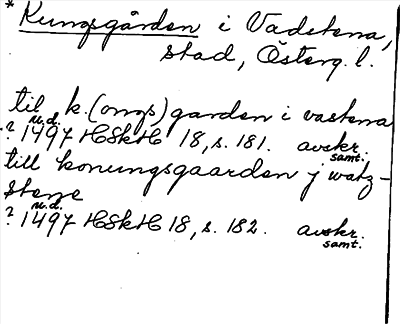 * Kungsgården i Vadstena,
stad, Österg. l.
til k.(ongs)garden i vastena
? u.d. 1497 HSkH 18, s. 181. avskr. samt.
till konungsgaarden j watz-
stene
? u.d. 1497 HSkH 18, s. 182. avskr. samt.